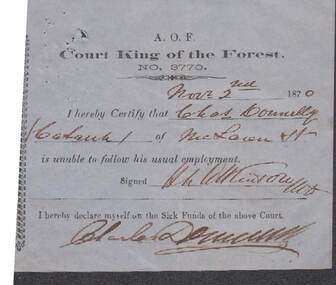 A. O. F.
Court King of the Forest.
NO. 3770.
Novr 2nd 1870
I hereby Certify that Chas Donnelly
of McLaren St
is unable to follow his usual employment.
Signed
I hereby declare myself on the Sick Funds of the above Court.
Charles Donnelly